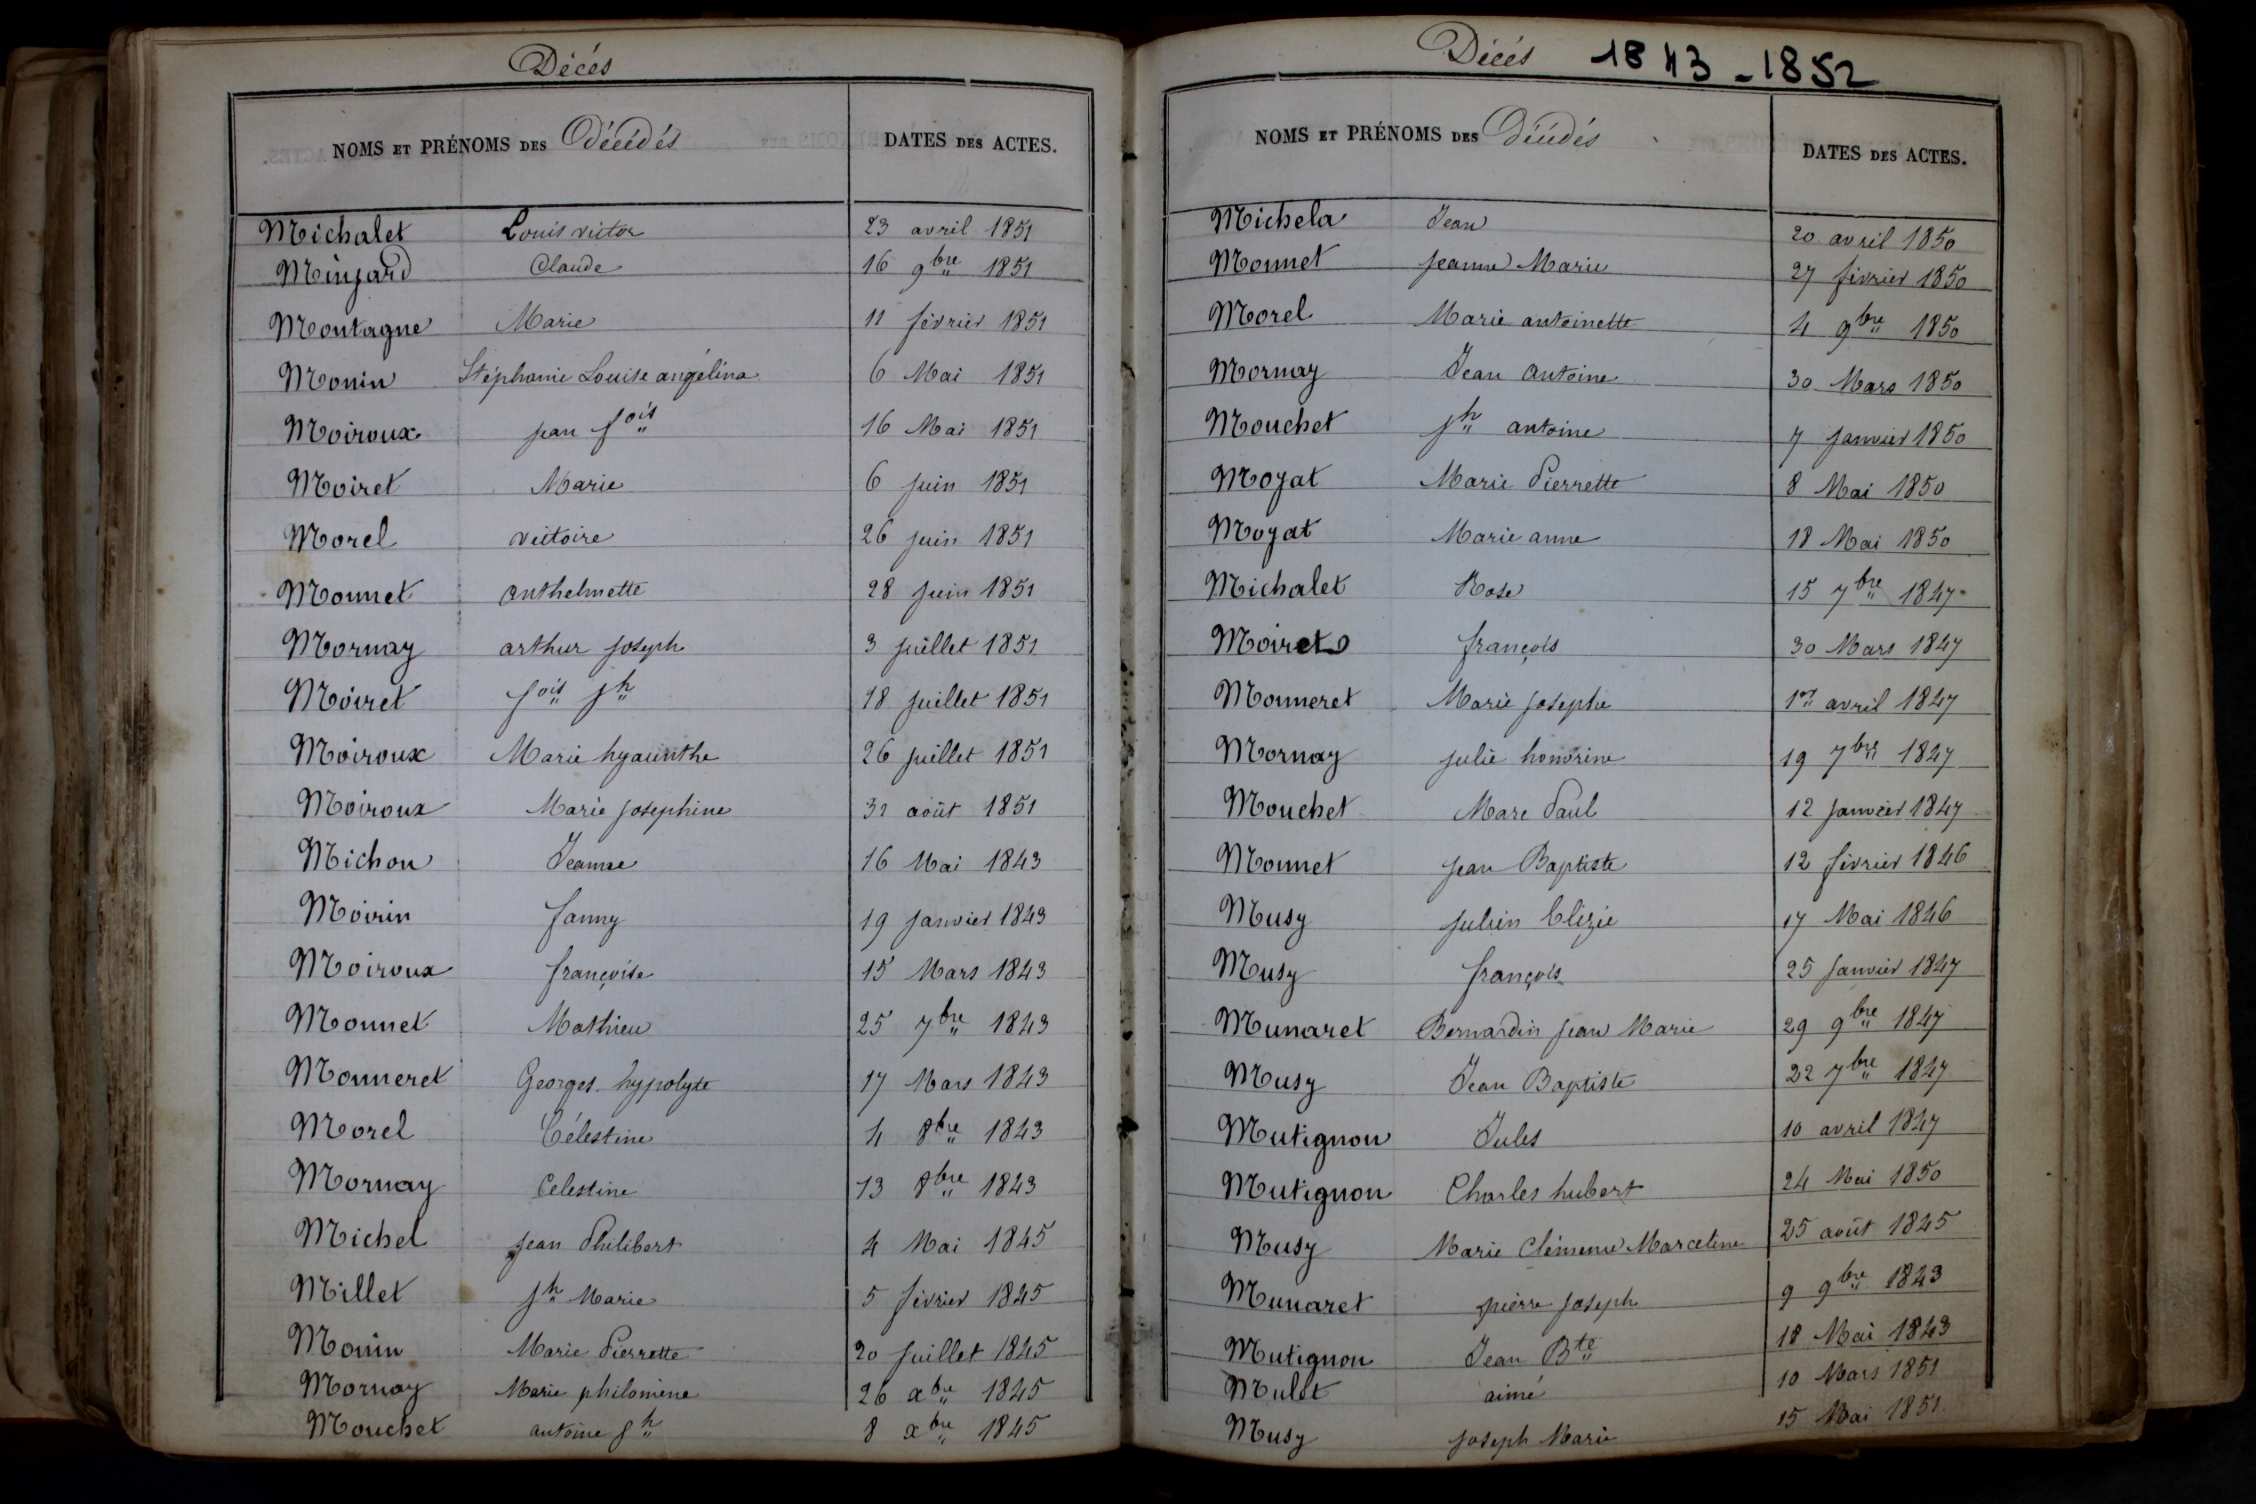 Décés
NOMS ET PRÉNOMS DES Décédés DATES DES ACTES.
Michalet Louis victor 23 avril 1851
Minjard Claude 16 9bre 1851
Montagne Marie 11 février 1851
Monin Stéphanie Louise angélina 6 Mai 1851
Moiroux jean fois 16 Mai 1851
Moiret Marie 6 juin 1851
Morel victoire 26 juin 1851
Monnet anthelmette 28 juin 1851
Mornay arthur joseph 3 juillet 1851
Moiret fois jh 18 juillet 1851
Moiroux Marie hyacinthe 26 juillet 1851
Moiroux Marie josephine 31 août 1851
Michon Jeanne 16 Mai 1843
Moirin fanny 19 janvier 1843
Moiroux françoise 15 Mars 1843
Monnet Mathieu 25 7bre 1843
Monneret Georges hypolyte 17 Mars 1843
Morel Célestine 4 8bre 1843
Mornay Celestine 13 8bre 1843
Michel jean Philibert 4 Mai 1845
Millet jh Marie 5 février 1845
Monin Marie Pierrette 20 juillet 1845
Mornay Marie philomène 26 xbre 1845
Mouchet antoine jh 8 xbre 1845
Décés 1843-1852
NOMS ET PRÉNOMS DES Décédés DATES DES ACTES.
Michela Jean 20 avril 1850
Monnet jeanne Marie 27 février 1850
Morel Marie antoinette 4 9bre 1850
Mornay Jean antoine 30 Mars 1850
Mouchet jh antoine 7 janvier 1850
Moyat Marie Pierrette 8 Mai 1850
Moyat Marie anne 18 Mai 1850
Michalet Rose 15 7bre 1847
Moiret françois 30 Mars 1847
Monneret Marie josephe 1er avril 1847
Mornay julie honorine 19 7bre 1847
Mouchet Marc Paul 12 janvier 1847
Monnet jean Baptiste 12 février 1846
Musy julien Elizie 17 Mai 1846
Musy françois 25 janvier 1847
Munaret Bernardin jean Marie 29 9bre 1847
Musy Jean Baptiste 22 7bre 1847
Mutignon Jules 10 avril 1847
Mutignon Charles hubert 24 Mai 1850
Musy Marie Clémence Marceline 25 août 1845
Munaret pierre joseph 9 9bre 1843
Mutignon Jean Bte 18 Mai 1843
Mulot aimé 10 Mars 1851
Musy joseph Marie 15 Mai 1851